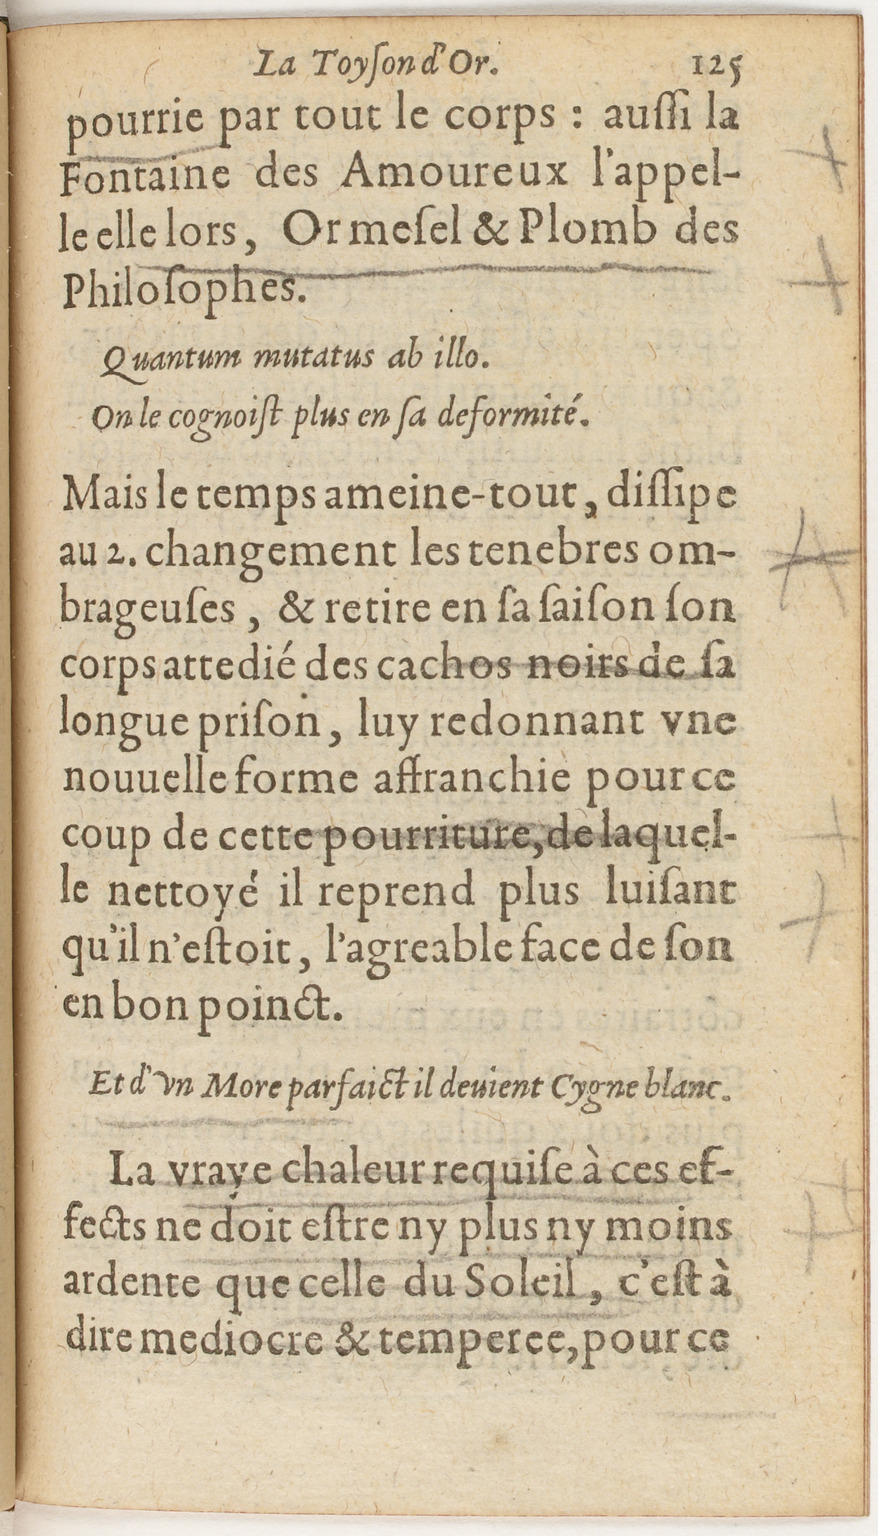 La Toyſon d'Or. 125
pourrie par tout le corps : auſſi la
Fontaine des Amoureux l'appel-
le elle lors, Or meſel & Plomb des
Philoſophes.
Quantum mutatus ab illo.
On le cognoiſt plus en ſa deformité.
Mais le temps ameine-tout, diſſipe
au 2. changement les tenebres om-
brageuſes, & retire en ſa ſaiſon ſon
corps attedié des cachos noirs de ſa
longue priſon, luy redonnant vne
nouuelle forme affranchie pour ce
coup de cette pourriture, de laquel-
le nettoyé il reprend plus luiſant
qu'il n'eſtoit, l'agreable face de ſon
en bon poinct.
Et d'vn More parfaict il deuient Cygne blanc.
La vraye chaleur requiſe à ces ef-
fects ne doit eſtre ny plus ny moins
ardente que celle du Soleil, c'eſt à
dire mediocre & temperee, pour ce